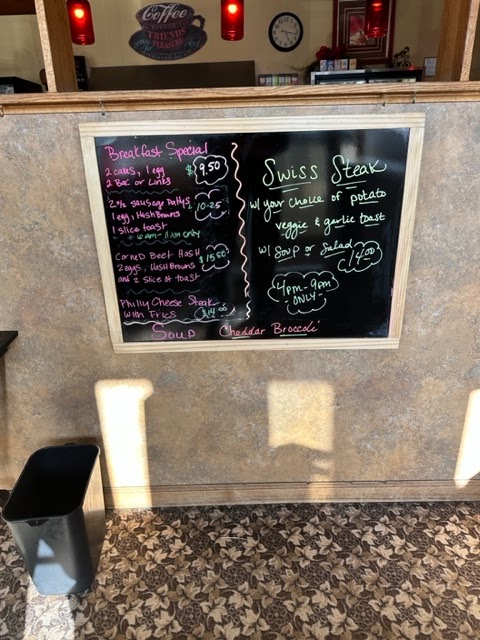 Coffee
FRIENDS
Breakfast Special
2 cakes, 1 egg $9.50
2 Bac or Links
2 oz sausage Pattys 10.25
1 egg, HashBrowns
1 slice toast
6am-11am only
Corned Beef Hash $15.50
2 eggs, Hash Browns
and 2 slice of toast
Philly Cheese Steak
with Fries $14.00
Swiss Steak
w/ your choice of potato
veggie & garlic toast
w/ Soup or Salad 14.00
4pm-9pm
ONLY
Soup Cheddar Broccoli